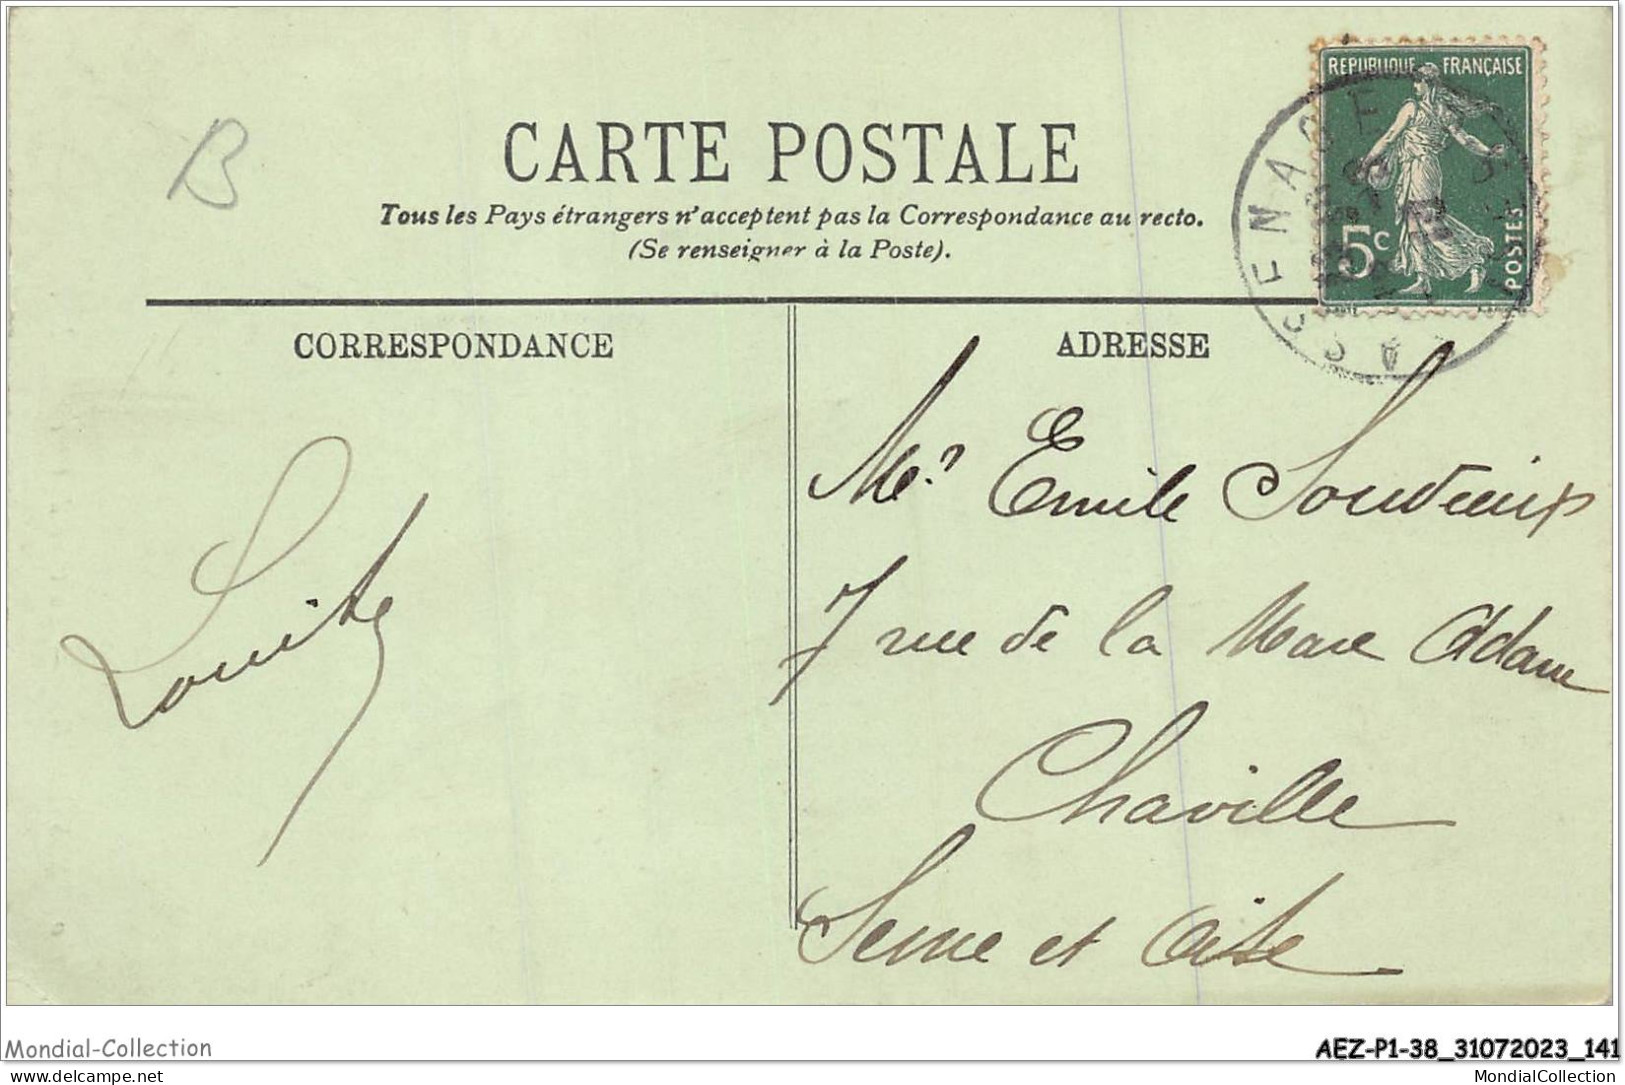 B
CARTE POSTALE
Tous les Pays étrangers n'acceptent pas la Correspondance au recto.
(Se renseigner à la Poste).
REPUBLIQUE FRANÇAISE
5c
POSTES
SASSENAGE
CORRESPONDANCE
ADRESSE
Mr Emile
7 rue de la Mare Adam
Chaville
Seine et Oise
Mondial-Collection
AEZ-P1-38_31072023_141
www.delcampe.net
MondialCollection